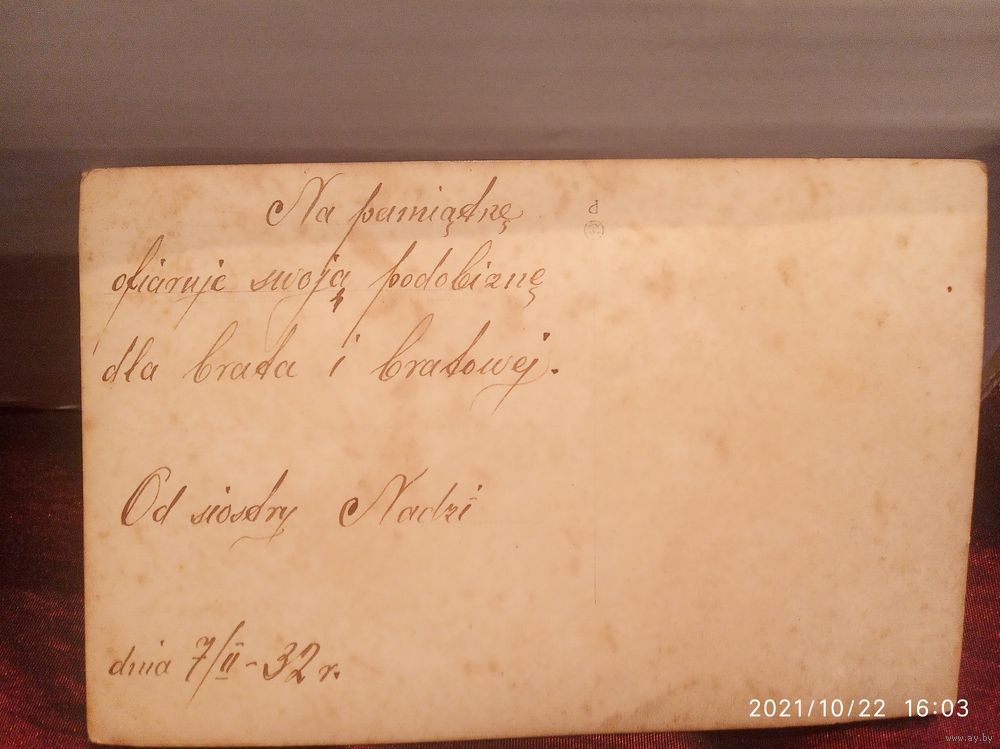 Na pamiątnę
ofiaruje swoją podobiznę
dla brata i bratowej.
Od siostry Nadzi
dnia 7/II - 32 r.
P
2021/10/22 16:03
www.ay.by